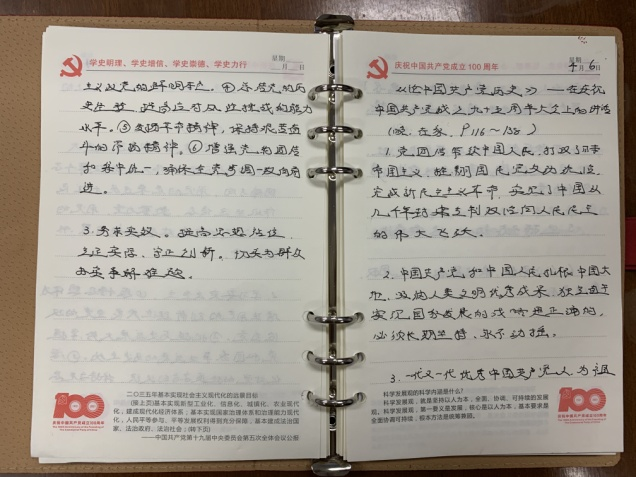 学史明理、学史增信、学史崇德、学史力行
星期
月 日
主义政党的鲜明本色。④总结党的历
史经验,提高应对风险挑战的能力
水平。⑤发扬革命精神,保持艰苦奋
斗的革命精神。⑥增强党的团结
和集中统一,确保全党步调一致向前
进。
3.务求实效。提高思想站位,
立足实际、守正创新。切实为群众
办实事解难题。
二〇三五年基本实现社会主义现代化的远景目标
(接上页)基本实现新型工业化、信息化、城镇化、农业现代
化,建成现代化经济体系;基本实现国家治理体系和治理能力现代
化,人民平等参与、平等发展权利得到充分保障;基本建成法治国
家、法治政府、法治社会;(转下页)
——中国共产党第十九届中央委员会第五次全体会议公报
100
庆祝中国共产党成立100周年
庆祝中国共产党成立100周年
星期
4月6日
《论中国共产党历史》——在庆祝
中国共产党成立九十五周年大会上的讲话
(晚.在家. P116~138)
1.党团结带领中国人民,打败日本
帝国主义,推翻国民党反动统治,
完成新民主主义革命,实现了中国从
几千年封建专制政治向人民民主
的伟大飞跃。
2.中国共产党和中国人民扎根中国大
地、吸纳人类文明优秀成果、独立自主
实现国家发展的战略是正确的,
必须长期坚持、永不动摇。
3.一代又一代优秀中国共产党人,为祖
科学发展观的科学内涵是什么?
科学发展观,就是坚持以人为本,全面、协调、可持续的发展
观。科学发展观,第一要义是发展;核心是以人为本,基本要求是
全面协调可持续;根本方法是统筹兼顾。
100
庆祝中国共产党成立100周年